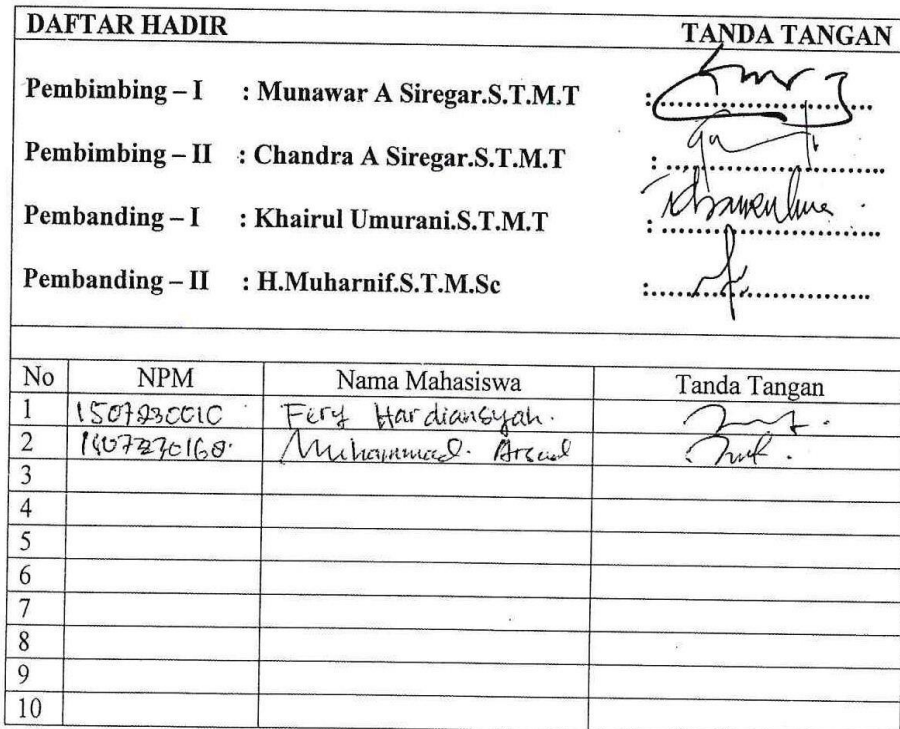 DAFTAR HADIR TANDA TANGAN
Pembimbing – I : Munawar A Siregar.S.T.M.T :..............................
Pembimbing – II : Chandra A Siregar.S.T.M.T :..............................
Pembanding – I : Khairul Umurani.S.T.M.T :..............................
Pembanding – II : H.Muharnif.S.T.M.Sc :..............................
No NPM Nama Mahasiswa Tanda Tangan
1 1507230010 Fery Hardiansyah.
2 Muhammad. Arsad
3
4
5
6
7
8
9
10